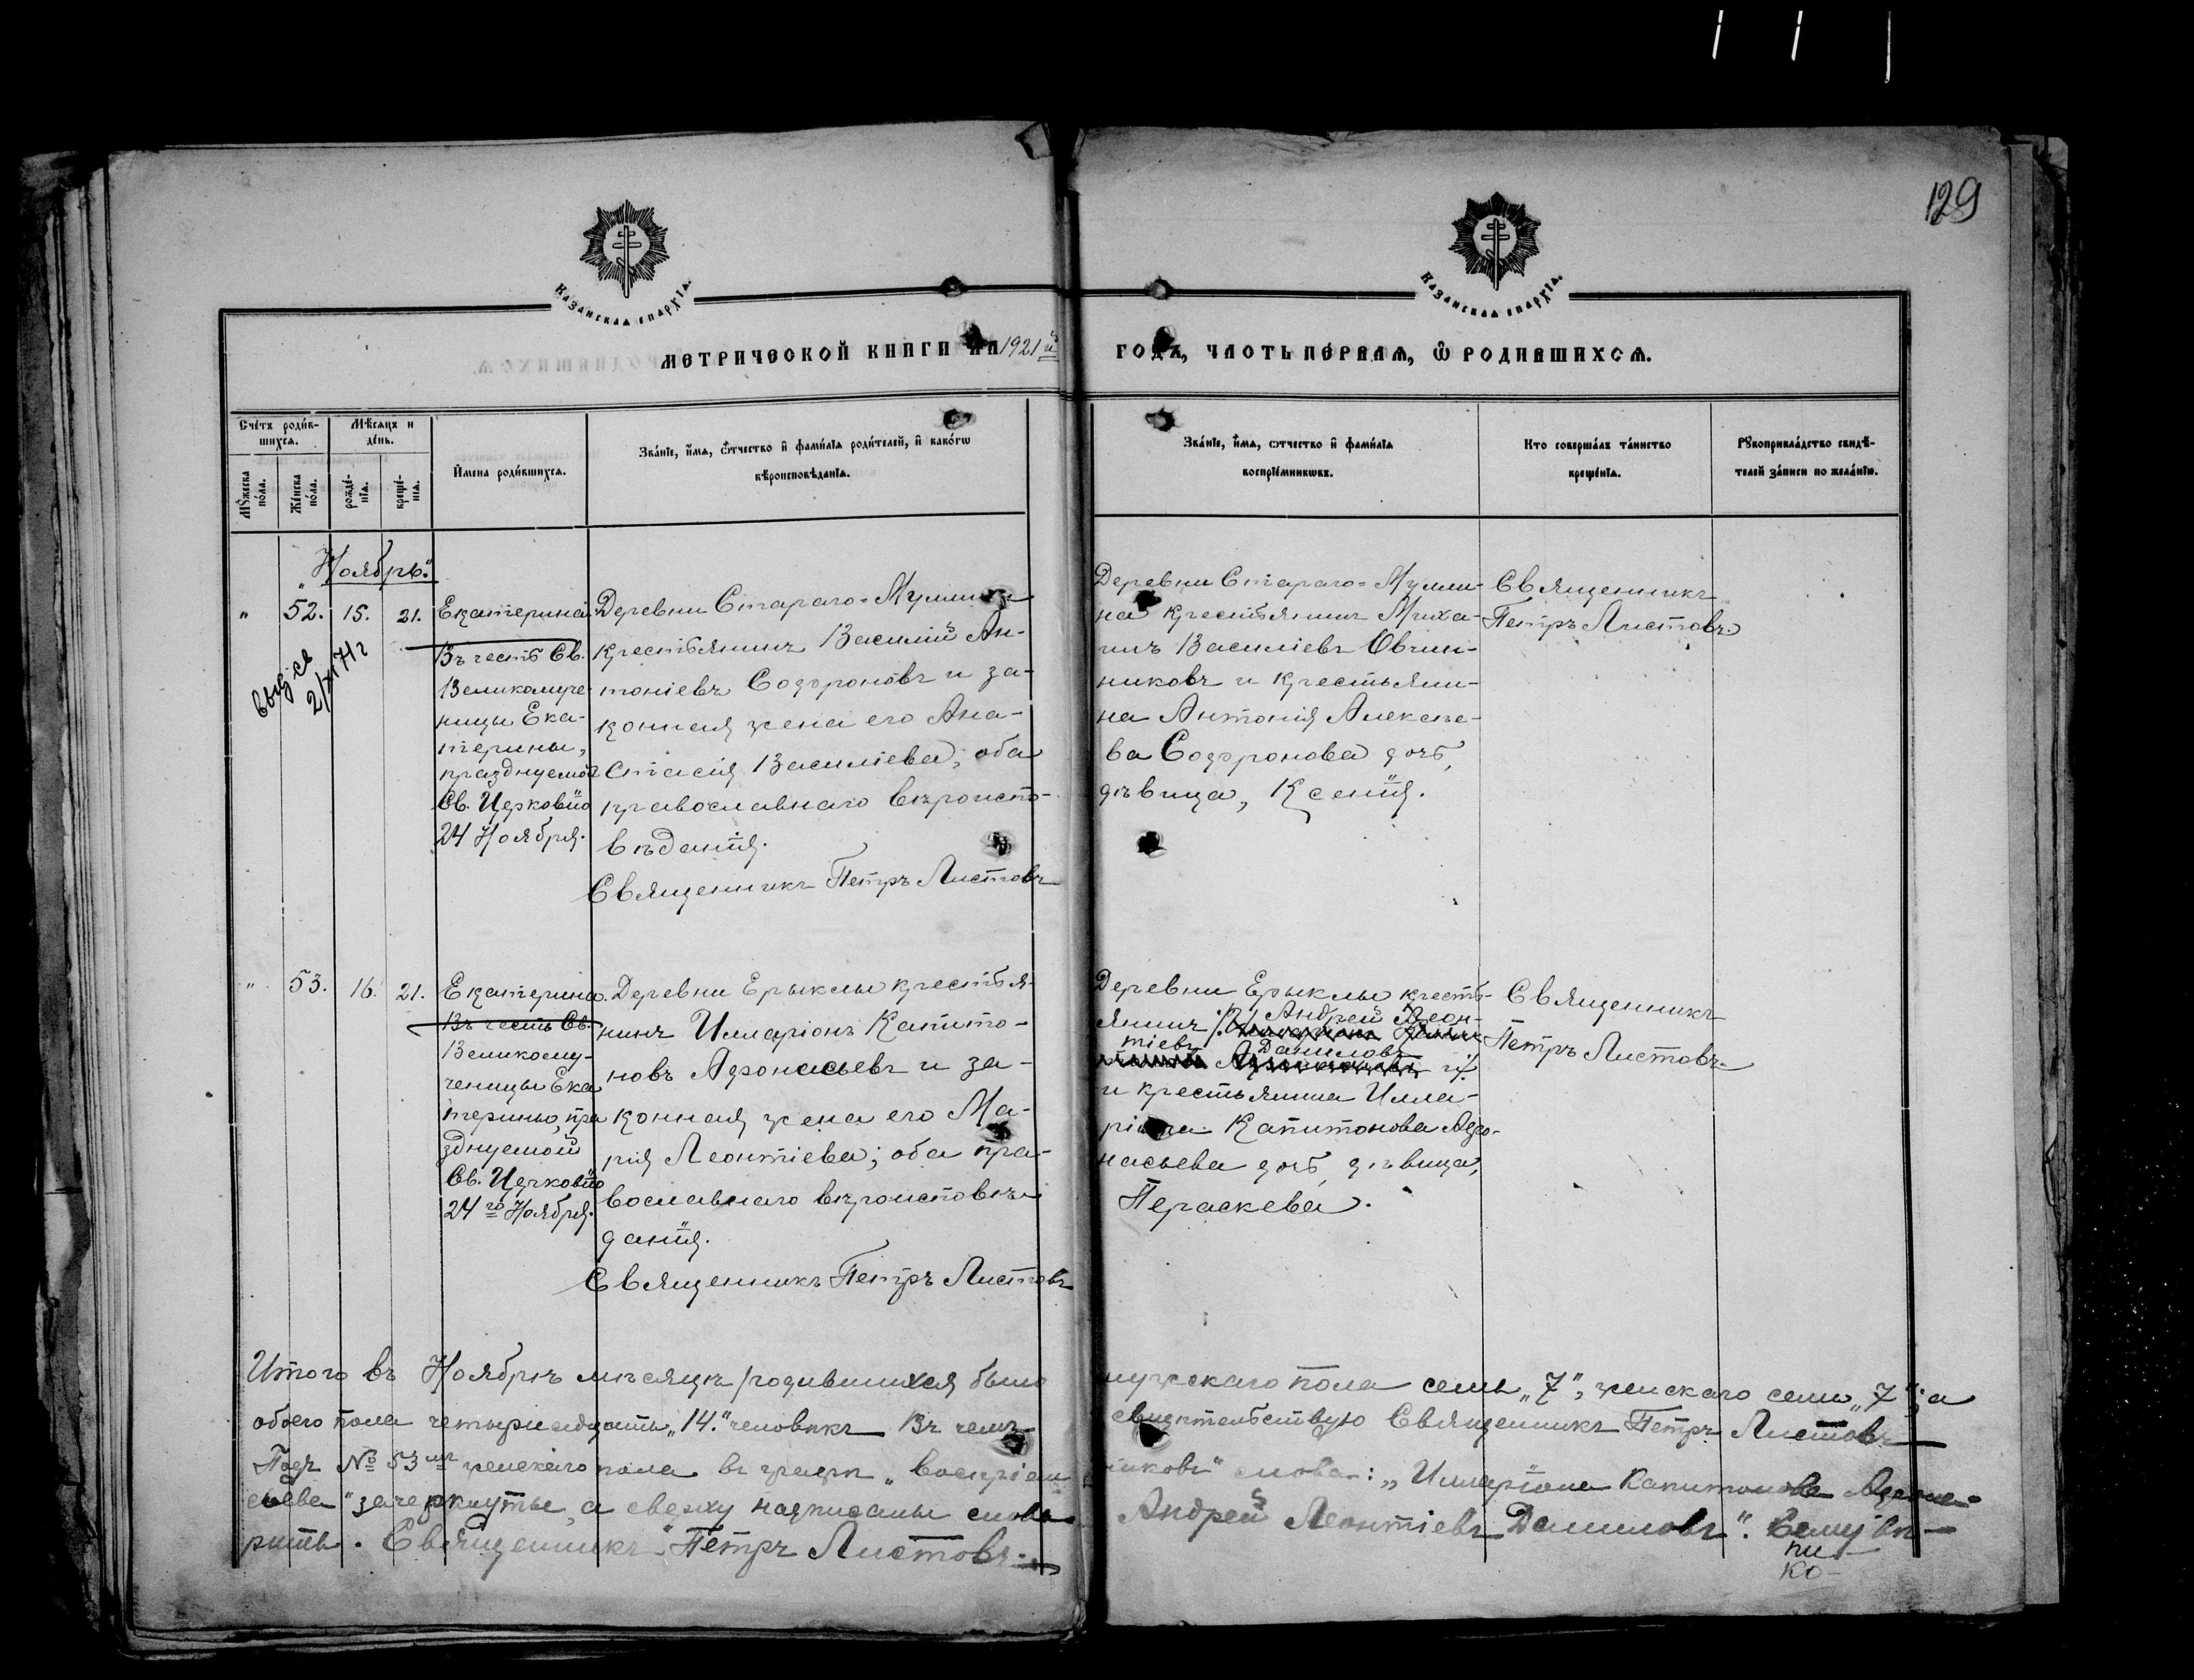 129
Казанская епархїа.
Казанская епархїа.
МЕТРИЧЕСКОЙ КНИГИ НА 1921й ГОДЪ, ЧАСТЬ ПЕРВАЯ, Ѿ РОДИВШИХСЯ.
Счетъ родив-
шихся.
Мѣсяцъ и
день.
Мꙋжеска
пола.
Женска
пола.
рожде-
нїя.
креще-
нїя.
Имена родившихся.
Званїе, имя, ѿтчество и фамилїя родителей, и какогѡ
вѣроисповѣданїя.
Званїе, имя, ѿтчество и фамилїя
воспрїемникѡвъ.
Кто совершалъ таинство
крещенїя.
Рꙋкоприкладство свидѣ-
телей записи по желанїю.
„Ноябрь."
" 52. 15. 21.
2/XI 71 г
Екатерина
Въ честь Св.
Великомуче-
ницы Ека-
терины,
празднуемой
Св. Церковію
24 Ноября.
Деревни Стараго-Муллина
крестьянинъ Василій Ан-
тоніевъ Софроновъ и за-
конная жена его Ана-
стасія Василіева, оба
православнаго вѣроиспо-
вѣданія.
Священникъ Петръ Листовъ
Деревни Стараго-Мулли-
на крестьянинъ Миха-
илъ Василіевъ Овчин-
никовъ и крестьяни-
на Антонія Алексѣе-
ва Софронова дочь,
дѣвица, Ксенія.
Священникъ
Петръ Листовъ.
" 53. 16. 21.
Екатерина.
Въ честь Св.
Великому-
ченицы Ека
терины, пра
зднуемой
Св. Церковію
24го Ноября.
Деревни Ерыклы крестья-
нинъ Илларіонъ Капито-
новъ Афонасьевъ и за-
конная жена его Ма-
рія Леонтіева; оба пра-
вославнаго вѣроисповѣ-
данія.
Священникъ Петръ Листовъ
Деревни Ерыклы кресть-
янинъ Андрей Леон-
тіевъ Даниловъ
и крестьянина Илла-
ріона Капитонова Афо-
насьева дочь, дѣвица,
Параскева.
Священникъ
Петръ Листовъ.
Итого въ Ноябрѣ мѣсяцѣ родившихся было мужскаго пола семь „7", женскаго семь „7"; а
обоего пола четырнадцать „14." человѣкъ Въ чемъ свидѣтельствую Священникъ Петръ Листовъ
Подъ № 53мъ женскаго пола въ графѣ „воспріемниковъ" слова: „Илларіона Капитонова Афона-
сьева" зачеркнуты, а сверху надписаны слова Андрей Леонтіевъ Даниловъ". Сему вѣ-
рить. Священникъ Петръ Листовъ.